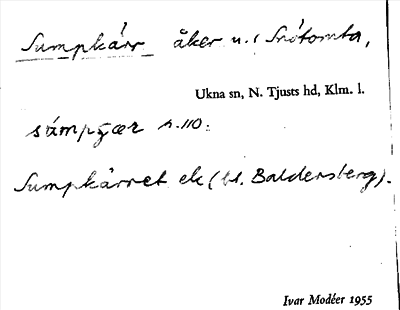 Sumpkärr åker u. (Snötomta,
Ukna sn, N. Tjusts hd, Klm. l.
n. 110.
Sumpkärret ek (bl. Baldersberg).
Ivar Modéer 1955